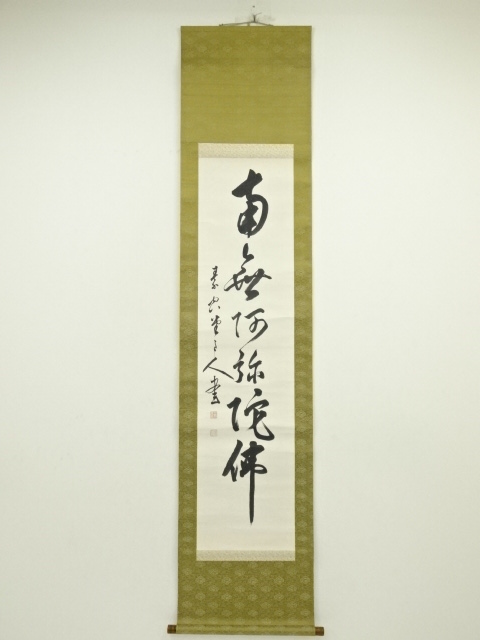 南無阿弥陀佛
人書